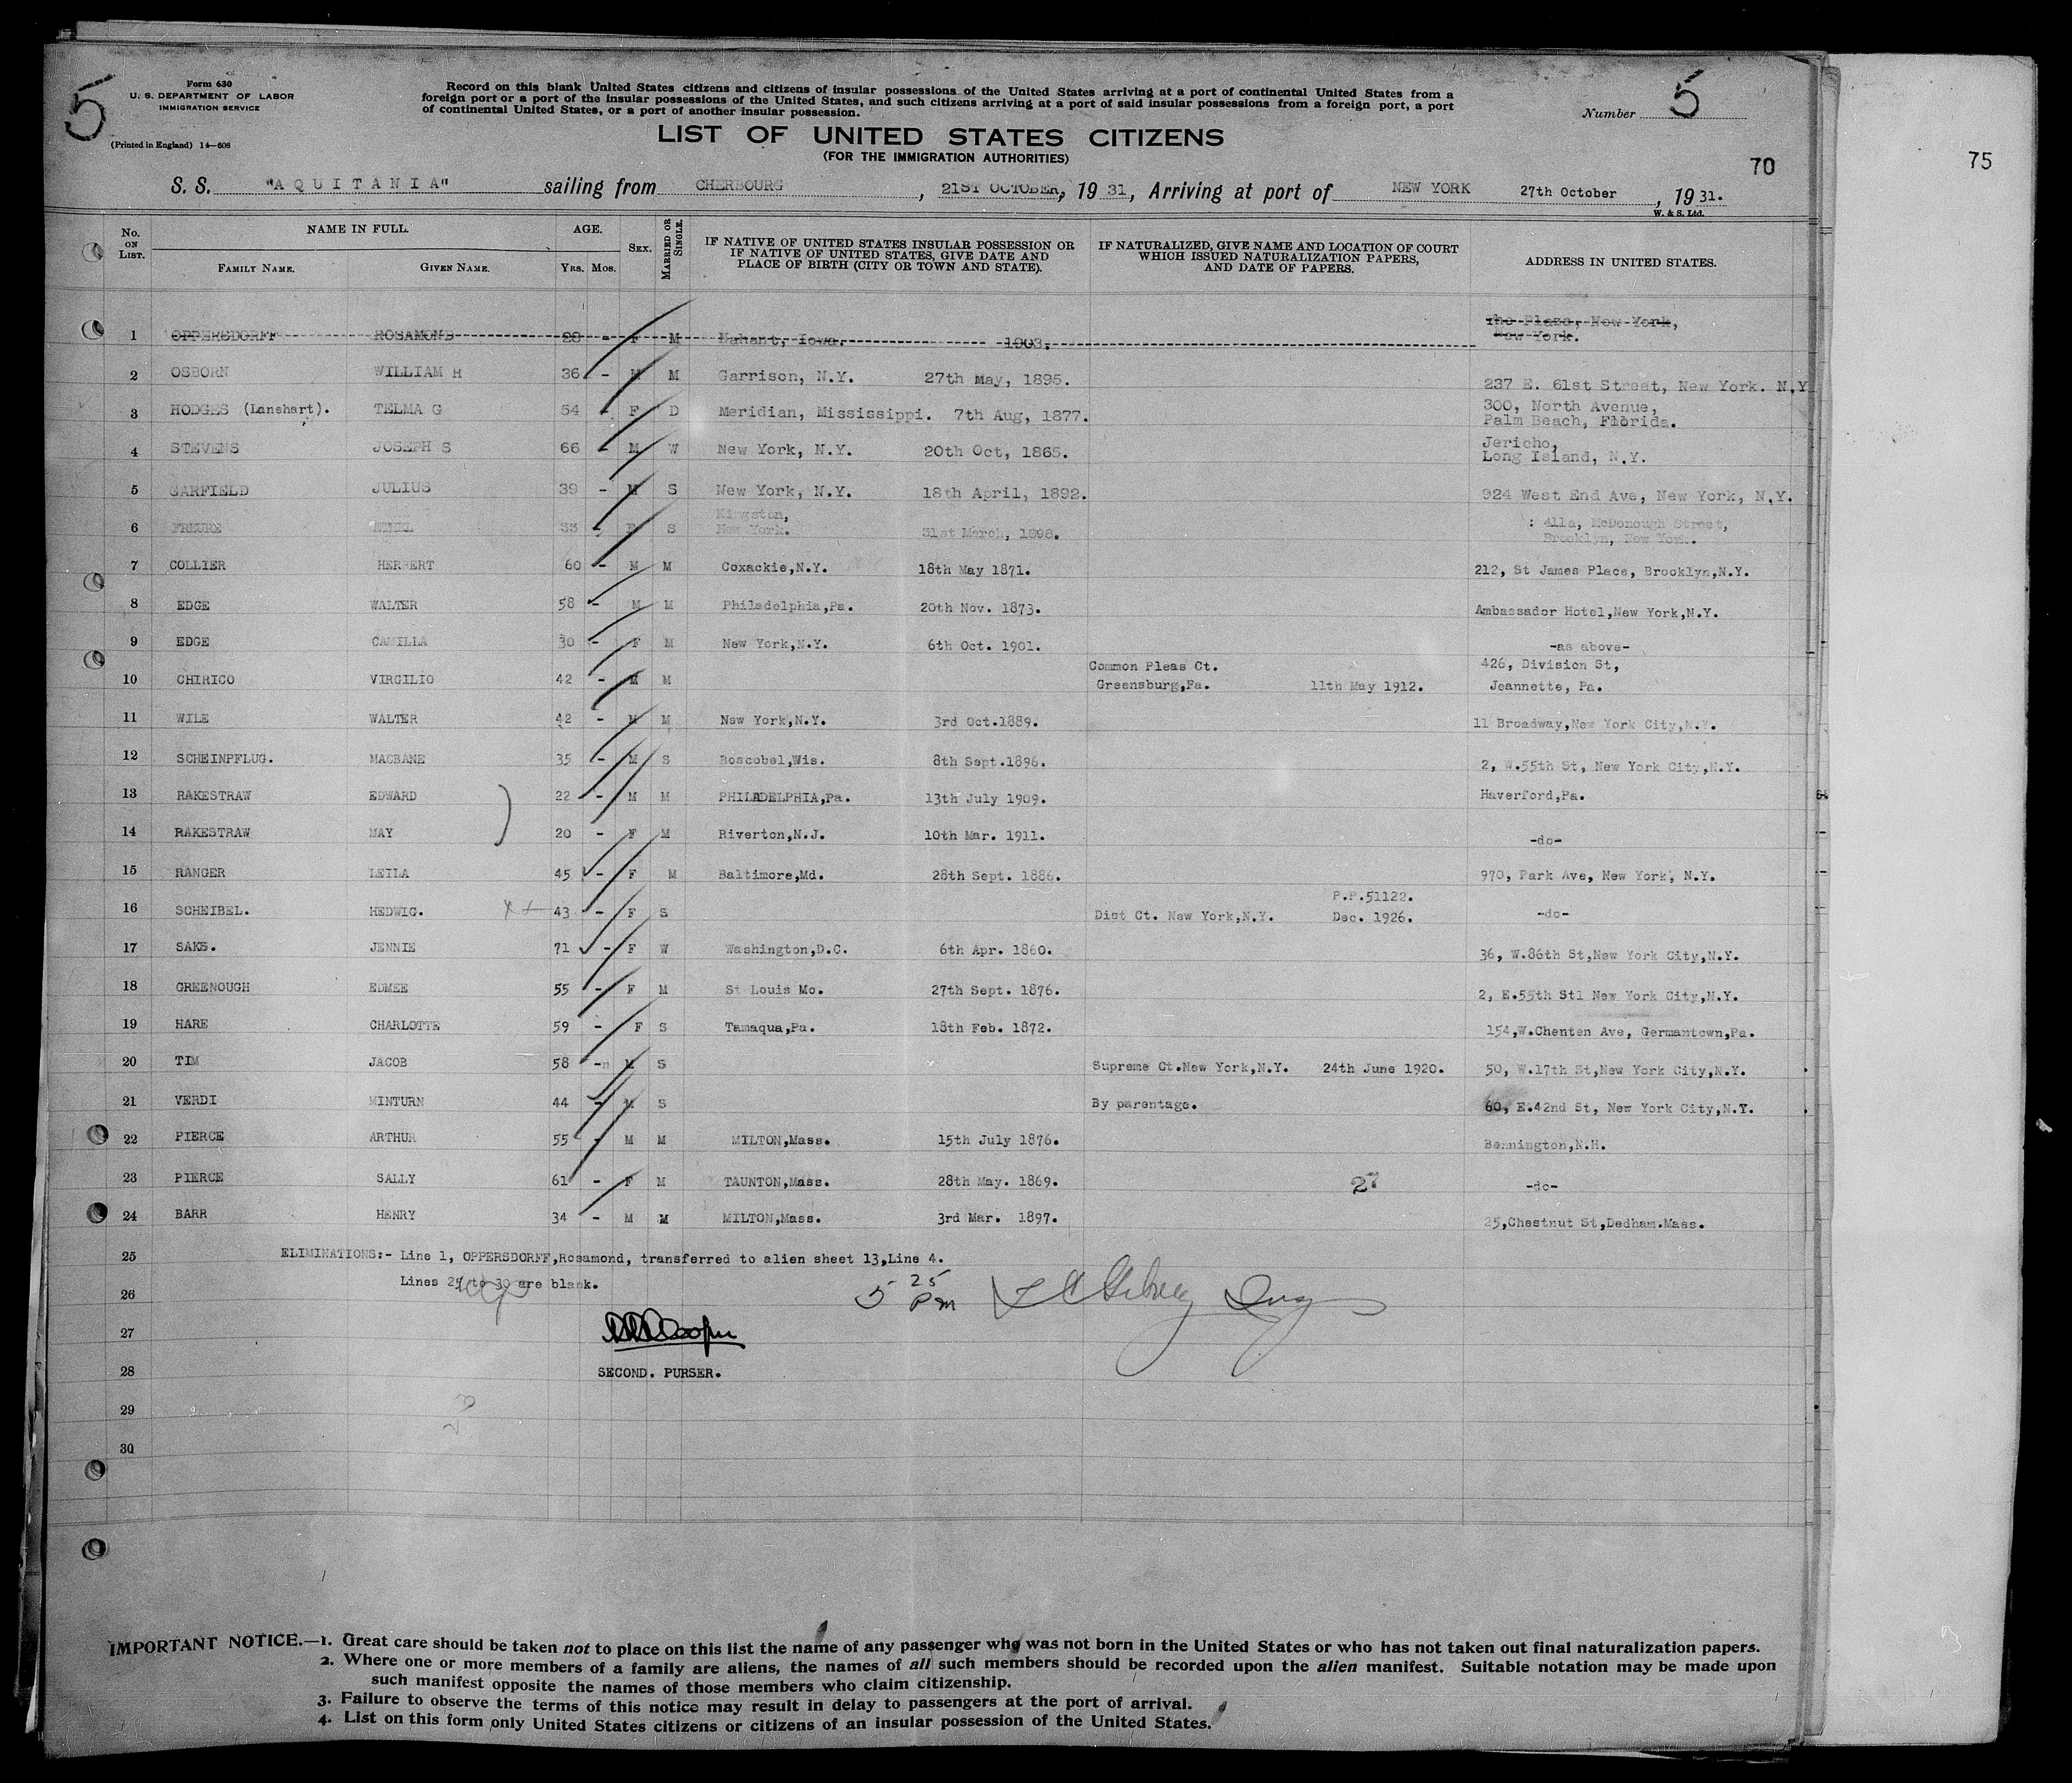 5
Form 630
U. S. DEPARTMENT OF LABOR
IMMIGRATION SERVICE
(Printed in England) 14—608
Record on this blank United States citizens and citizens of insular possessions of the United States arriving at a port of continental United States from a
foreign port or a port of the insular possessions of the United States, and such citizens arriving at a port of said insular possessions from a foreign port, a port
of continental United States, or a port of another insular possession.
LIST OF UNITED STATES CITIZENS
(FOR THE IMMIGRATION AUTHORITIES)
Number 5
70
75
S. S. "AQUITANIA" sailing from CHERBOURG, 21ST OCTOBER, 19 31, Arriving at port of NEW YORK 27th October, 19 31.
W. & S. Ltd.
No. ON LIST. NAME IN FULL. FAMILY NAME. GIVEN NAME. AGE. YRS. MOS. SEX. MARRIED OR SINGLE. IF NATIVE OF UNITED STATES INSULAR POSSESSION OR IF NATIVE OF UNITED STATES, GIVE DATE AND PLACE OF BIRTH (CITY OR TOWN AND STATE). IF NATURALIZED, GIVE NAME AND LOCATION OF COURT WHICH ISSUED NATURALIZATION PAPERS, AND DATE OF PAPERS. ADDRESS IN UNITED STATES.
1 OPPERSDORFF ROSAMOND 28 - F M Nahant, Iowa. 1903. The Plaza, New York, New York.
2 OSBORN WILLIAM H 36 - M M Garrison, N.Y. 27th May, 1895. 237 E. 61st Street, New York. N.Y
3 HODGES (Lanehart). TELMA G 54 - F D Meridian, Mississippi. 7th Aug, 1877. 300, North Avenue, Palm Beach, Florida.
4 STEVENS JOSEPH S 66 - M W New York, N.Y. 20th Oct, 1865. Jericho, Long Island, N.Y.
5 GARFIELD JULIUS 39 - M S New York, N.Y. 18th April, 1892. 924 West End Ave, New York, N.Y.
6 FREURE 33 - F S Kingston, New York. 31st March, 1898. : 411a, McDonough Street, Brooklyn, New York.
7 COLLIER HERBERT 60 - M M Coxackie,N.Y. 18th May 1871. 212, St James Place, Brooklyn,N.Y.
8 EDGE WALTER 58 - M M Philadelphia,Pa. 20th Nov. 1873. Ambassador Hotel,New York,N.Y.
9 EDGE CAMILLA 30 - F M New York,N.Y. 6th Oct. 1901. -as above-
10 CHIRICO VIRGILIO 42 - M M Common Pleas Ct. Greensburg,Pa. 11th May 1912. 426, Division St, Jeannette, Pa.
11 WILE WALTER 42 - M M New York,N.Y. 3rd Oct.1889. 11 Broadway,New York City,N.Y.
12 SCHEINPFLUG. MACBANE 35 - M S Boscobel,Wis. 8th Sept.1896. 2, W.55th St, New York City,N.Y.
13 RAKESTRAW EDWARD 22 - M M PHILADELPHIA,Pa. 13th July 1909. Haverford,Pa.
14 RAKESTRAW MAY 20 - F M Riverton,N.J. 10th Mar. 1911. -do-
15 RANGER LEILA 45 - F M Baltimore,Md. 28th Sept. 1886. 970, Park Ave, New York, N.Y.
16 SCHEIBEL. HEDWIG. 43 - F S Dist Ct. New York,N.Y. P.P.51122. Dec. 1926. -do-
17 SAKS. JENNIE 71 - F W Washington,D.C. 6th Apr. 1860. 36, W.86th St,New York City,N.Y.
18 GREENOUGH EDMEE 55 - F M St Louis Mo. 27th Sept. 1876. 2, E.55th Stl New York City,N.Y.
19 HARE CHARLOTTE 59 - F S Tamaqua,Pa. 18th Feb. 1872. 154,W.Chenten Ave, Germantown,Pa.
20 TIM JACOB 58 - M S Supreme Ct.New York,N.Y. 24th June 1920. 50, W.17th St,New York City,N.Y.
21 VERDI MINTURN 44 - M S By parentage. 60, E.42nd St, New York City,N.Y.
22 PIERCE ARTHUR 55 - M M MILTON,Mass. 15th July 1876. Bennington,N.H.
23 PIERCE SALLY 61 - F M TAUNTON,Mass. 28th May. 1869. -do-
24 BARR HENRY 34 - M M MILTON,Mass. 3rd Mar. 1897. 25,Chestnut St,Dedham.Mass.
25 ELIMINATIONS:- Line 1, OPPERSDORFF,Rosamond, transferred to alien sheet 13,Line 4.
Lines 25 to 30 are blank.
26 5 25 Pm
27
28 SECOND. PURSER.
29
30
IMPORTANT NOTICE.—1. Great care should be taken not to place on this list the name of any passenger who was not born in the United States or who has not taken out final naturalization papers.
2. Where one or more members of a family are aliens, the names of all such members should be recorded upon the alien manifest. Suitable notation may be made upon
such manifest opposite the names of those members who claim citizenship.
3. Failure to observe the terms of this notice may result in delay to passengers at the port of arrival.
4. List on this form only United States citizens or citizens of an insular possession of the United States.